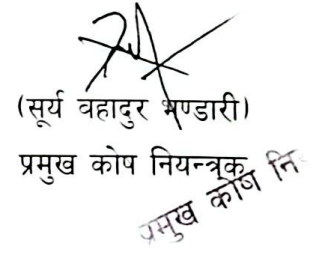 (सूर्य वहादुर भण्डारी)
प्रमुख कोष नियन्त्रक
प्रमुख कोष नि